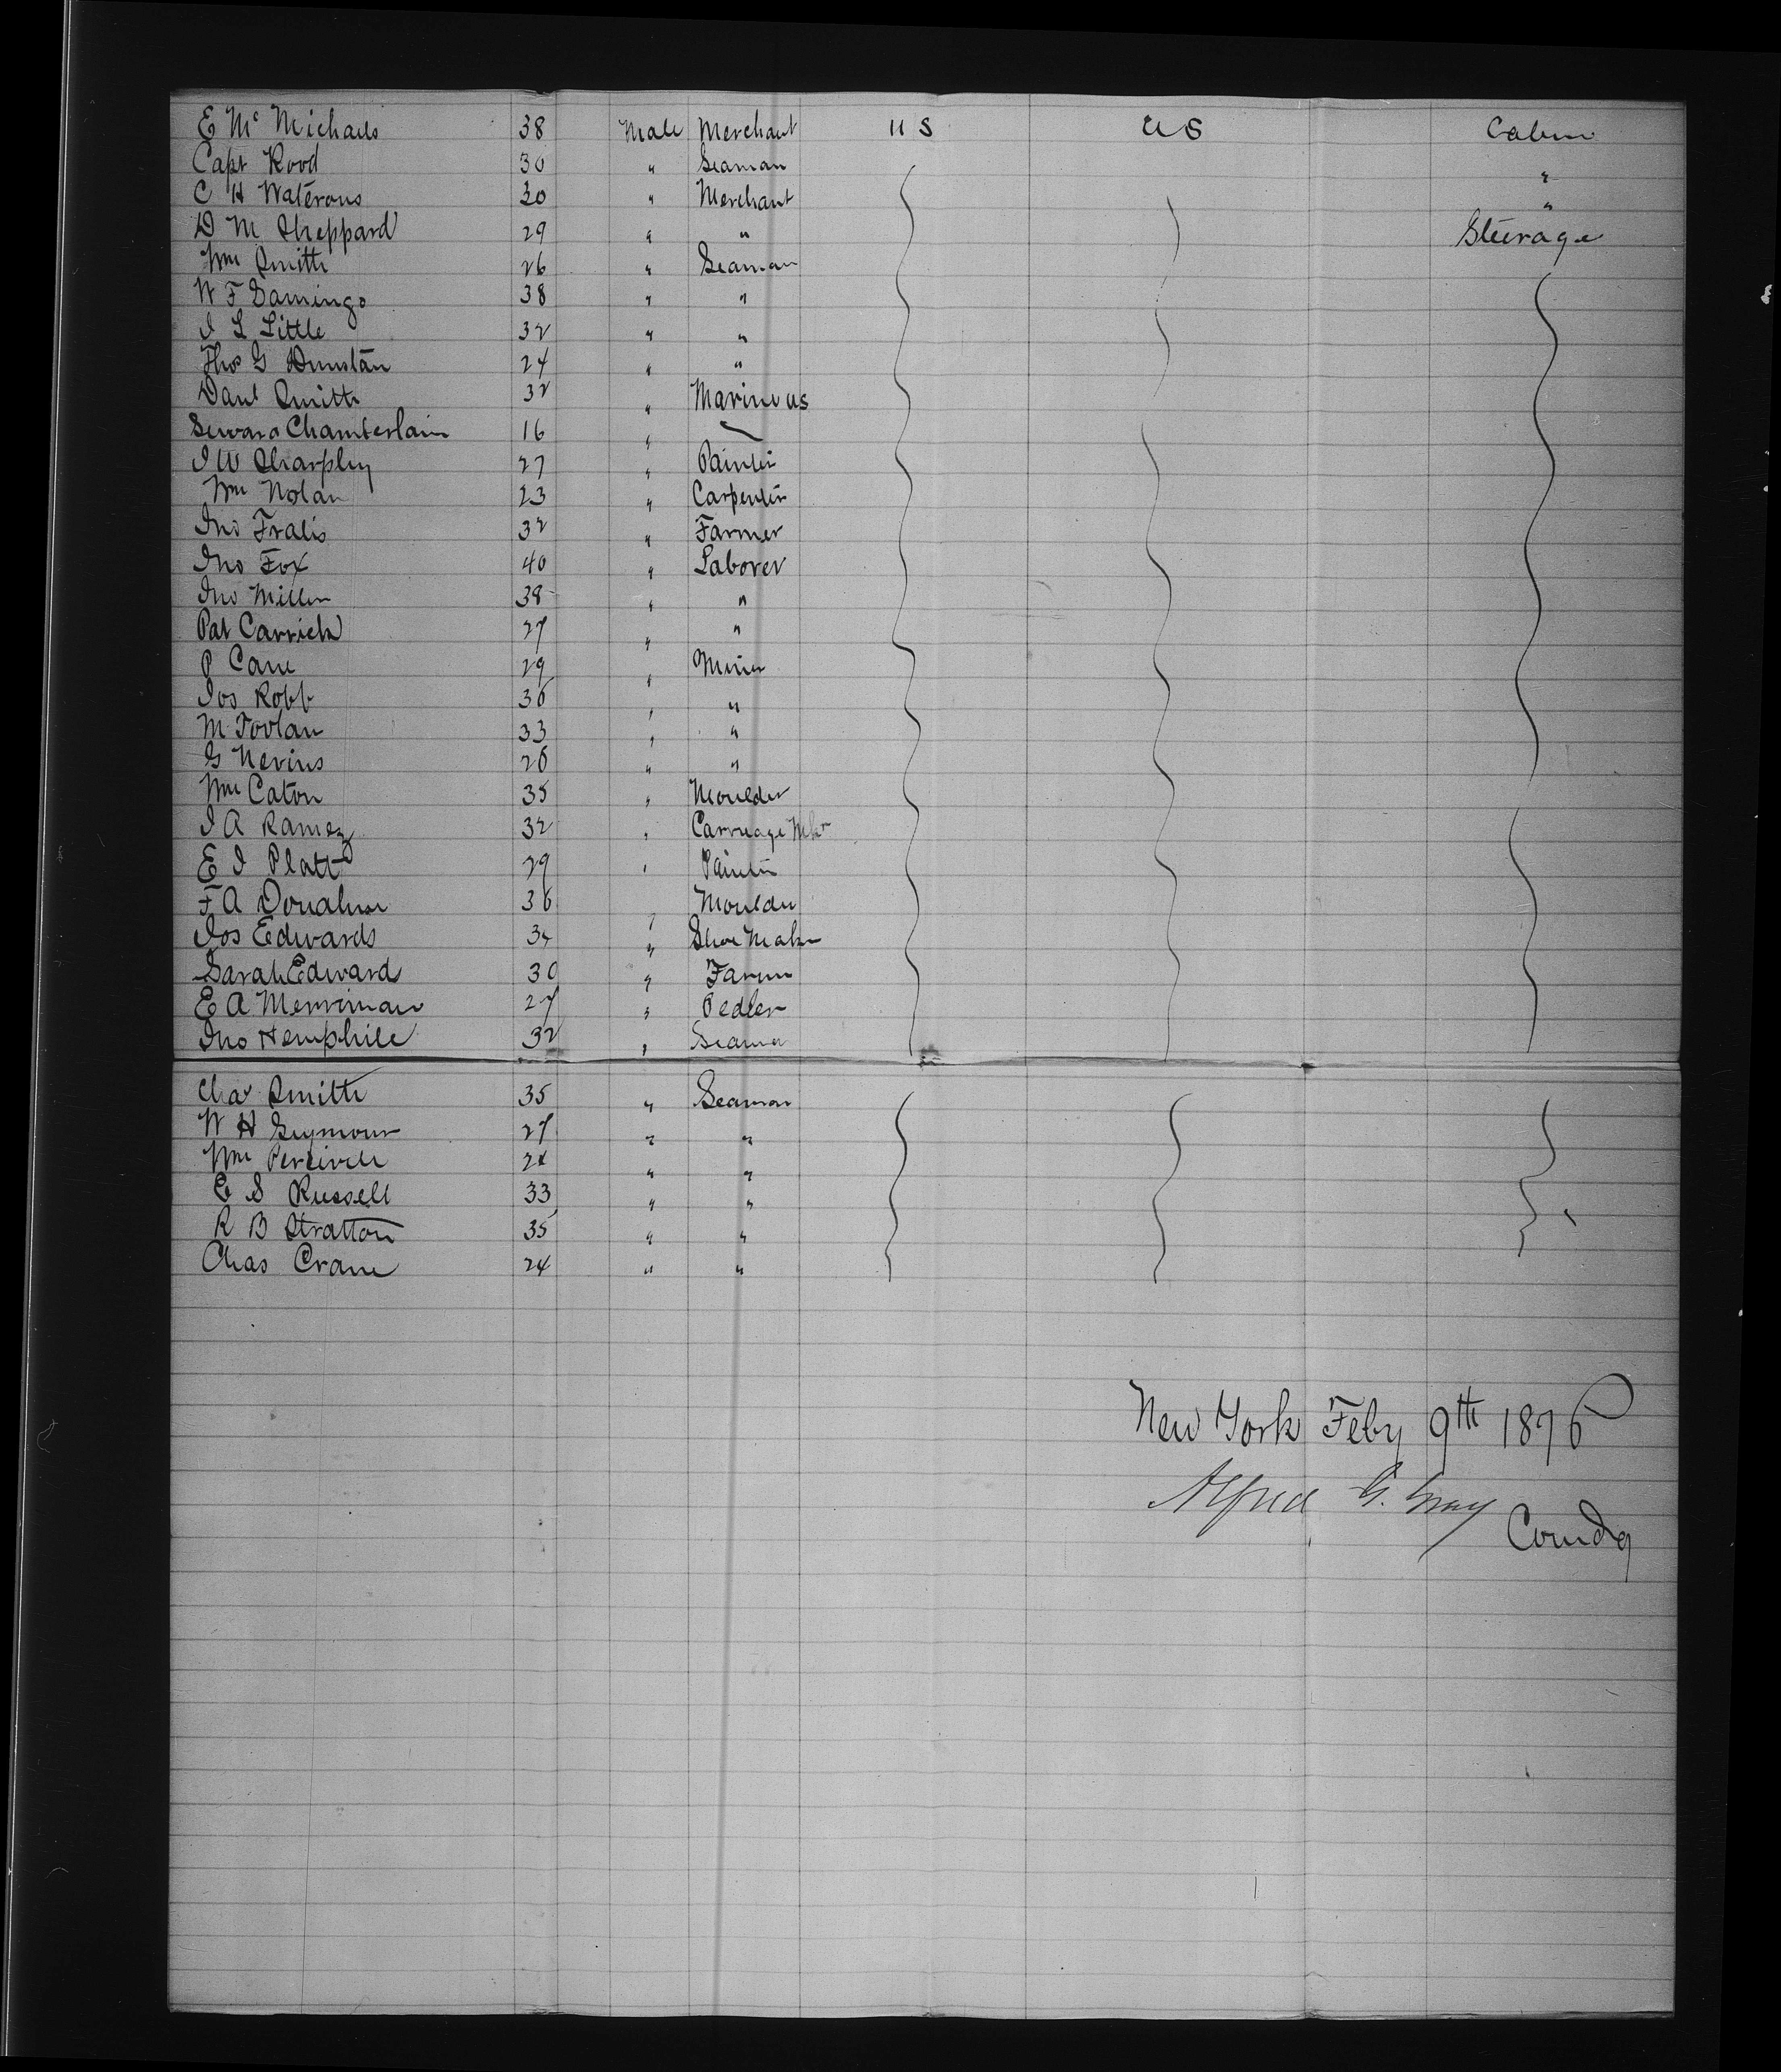 E Mc Michaels 38 Male Merchant U S U S Cabin
Capt Rood 30 " Seaman "
C H Waterous 30 " Merchant "
D M Sheppard 29 " " Steerage
Wm Smith 26 " Seaman
W F Domingo 38 " "
J L Little 32 " "
Thos G Dunstan 24 " "
Danl Smith 32 " Marine US
Seward Chamberlain 16 "
J W Sharpley 27 " Painter
Wm Nolan 23 " Carpenter
Jno Fralis 32 " Farmer
Jno Fox 40 " Laborer
Jno Miller 38 " "
Pat Carrick 27 " "
P Cane 29 " Miner
Jos Robb 36 " "
M 33 " "
G Nevins 26 " "
Wm Caton 35 " Moulder
J A Ramey 32 " Carriage Mkr
E J Platt 29 " Painter
F A Donahue 36 " Moulder
Jos Edwards 34 " Shoe Maker
Sarah Edward 30 " Farmer
E A Merriman 27 " Pedler
Jno Hemphill 32 " Seaman
Chas Smith 35 " Seaman
W H Seymour 27 " "
Wm 24 " "
E S Russell 33 " "
R B Stratton 35 " "
Chas Crane 24 " "
New York Feby 9th 1876
Alfred G. Gray
Comdg